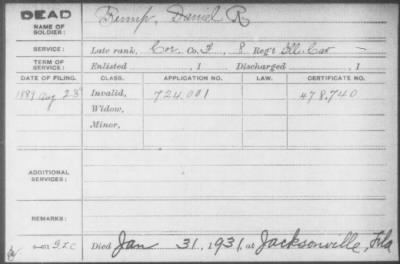 DEAD
NAME OF SOLDIER: Daniel R
SERVICE: Late rank, Cor, Co. F, 8 Reg't Ill. Cav
TERM OF SERVICE: Enlisted , 1 Discharged , 1
DATE OF FILING. CLASS. APPLICATION NO. LAW. CERTIFICATE NO.
Aug 23 Invalid, 724.001 478.740
Widow,
Minor,
ADDITIONAL SERVICES:
REMARKS:
Died Jan 31, 1931, at Jacksonville, Fla